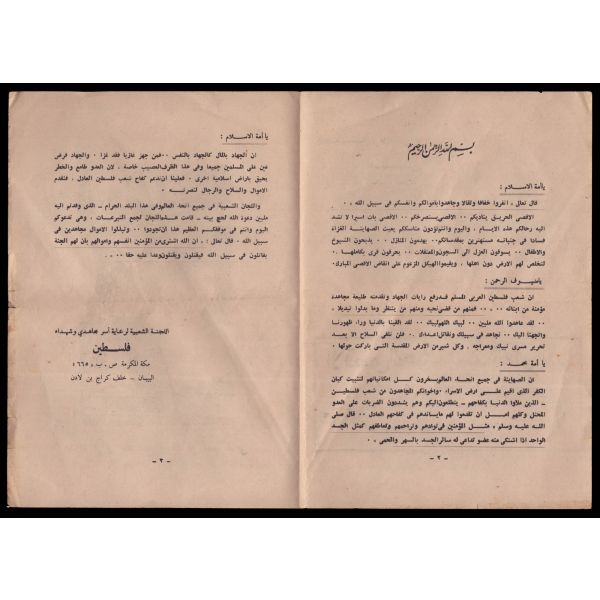 بسم الله الرحمن الرحيم
ياأمة الاسلام :
قال تعالى : انفروا خفافا وثقالا وجاهدوا باموالكم وانفسكم في سبيل الله ٠٠
الاقصى الحريق يناديكم ٠٠ الاقصى يستصرخكم ٠٠ الاقصى بات اسيرا لا تشد
اليه رحالكم هذه الايام ٠٠ واليوم وانتم تؤدون مناسككم يعيث الصهاينة الغزاة
فسادا في جنباته مستهترين بمقدساتكم ٠٠ يهدمون المنازل ٠٠ يذبحون الشيوخ
والاطفال ٠٠ يسوقون العزل الى السجون والمعتقلات ٠٠ يحرقون قرى بكاملها ٠٠
لتخلص لهم الارض دون اهلها ٠ ويقيموا الهيكل المزعوم على انقاض الاقصى المبارك
ياضيوف الرحمن :
ان شعب فلسطين العربي المسلم قد رفع رايات الجهاد وتقدمت طليعة مجاهدة
مؤمنة من ابنائه ٠٠ فمنهم من قضى نحبه ومنهم من ينتظر وما بدلوا تبديلا ٠
٠٠ لقد عاهدوا الله ملبين ٠٠ لبيك اللهم لبيك ٠٠ لقد القينا بالدنيا وراء ظهورنا
واتجهنا اليك ٠٠ نجاهد في سبيلك ونقاتل اعداءك ٠٠ فلن نلقى السلاح الا بعد
تحرير مسرى نبيك ومعراجه ٠ وكل شبر من الارض المقدسة التي باركت حولها ٠
يا أمة محمد :
ان الصهاينة في جميع انحاء العالم يسخرون كل امكانياتهم لتثبيت كيان
الكفر الذي اقيم على ارض الاسراء ٠ واخوانكم المجاهدون من شعب فلسطين
- الذين ملأوا الدنيا بكفاحهم - يتطلعون اليكم وهم يشددون الضربات على العدو
المحتل وكلهم امل ان تقدموا لهم مايساندهم في كفاحهم العادل ٠٠ قال صلى
الله عليه وسلم : مثل المؤمنين في توادهم وتراحمهم وتعاطفهم كمثل الجسد
الواحد اذا اشتكى منه عضو تداعى له سائر الجسد بالسهر والحمى ٠
- ٢ -
ياأمة الاسلام :
ان الجهاد بالمال كالجهاد بالنفس ٠٠ فمن جهز غازيا فقد غزا ٠ والجهاد فرض
عين على المسلمين جميعا وفي هذا الظرف العصيب خاصة ٠ لان العدو طامع والخطر
يحيق باراض اسلامية اخرى ٠ فعلينا ان ندعم كفاح شعب فلسطين العادل ٠ فنقدم
الاموال والسلاح والرجال لنصرته ٠
واللجان الشعبية في جميع انحاء العالم وفي هذا البلد الحرام - الذي وفدتم اليه
ملبين دعوة الله لحج بيته - قامت هذه اللجان لجمع التبرعات ٠ وهي تدعوكم
اليوم وانتم في موقفكم العظيم هذا ان تجودوا ٠٠ وتبذلوا الاموال مجاهدين في
سبيل الله ٠ قال تعالى : ان الله اشترى من المؤمنين انفسهم واموالهم بان لهم الجنة
يقاتلون في سبيل الله فيقتلون ويقتلون وعدا عليه حقا ٠٠ ٠
اللجنة الشعبية لرعاية أسر مجاهدي وشهداء
فلسطين
مكة المكرمة ص ٠ ب ٦٦٥
البيبان - خلف كراج بن لادن
- ٣ -